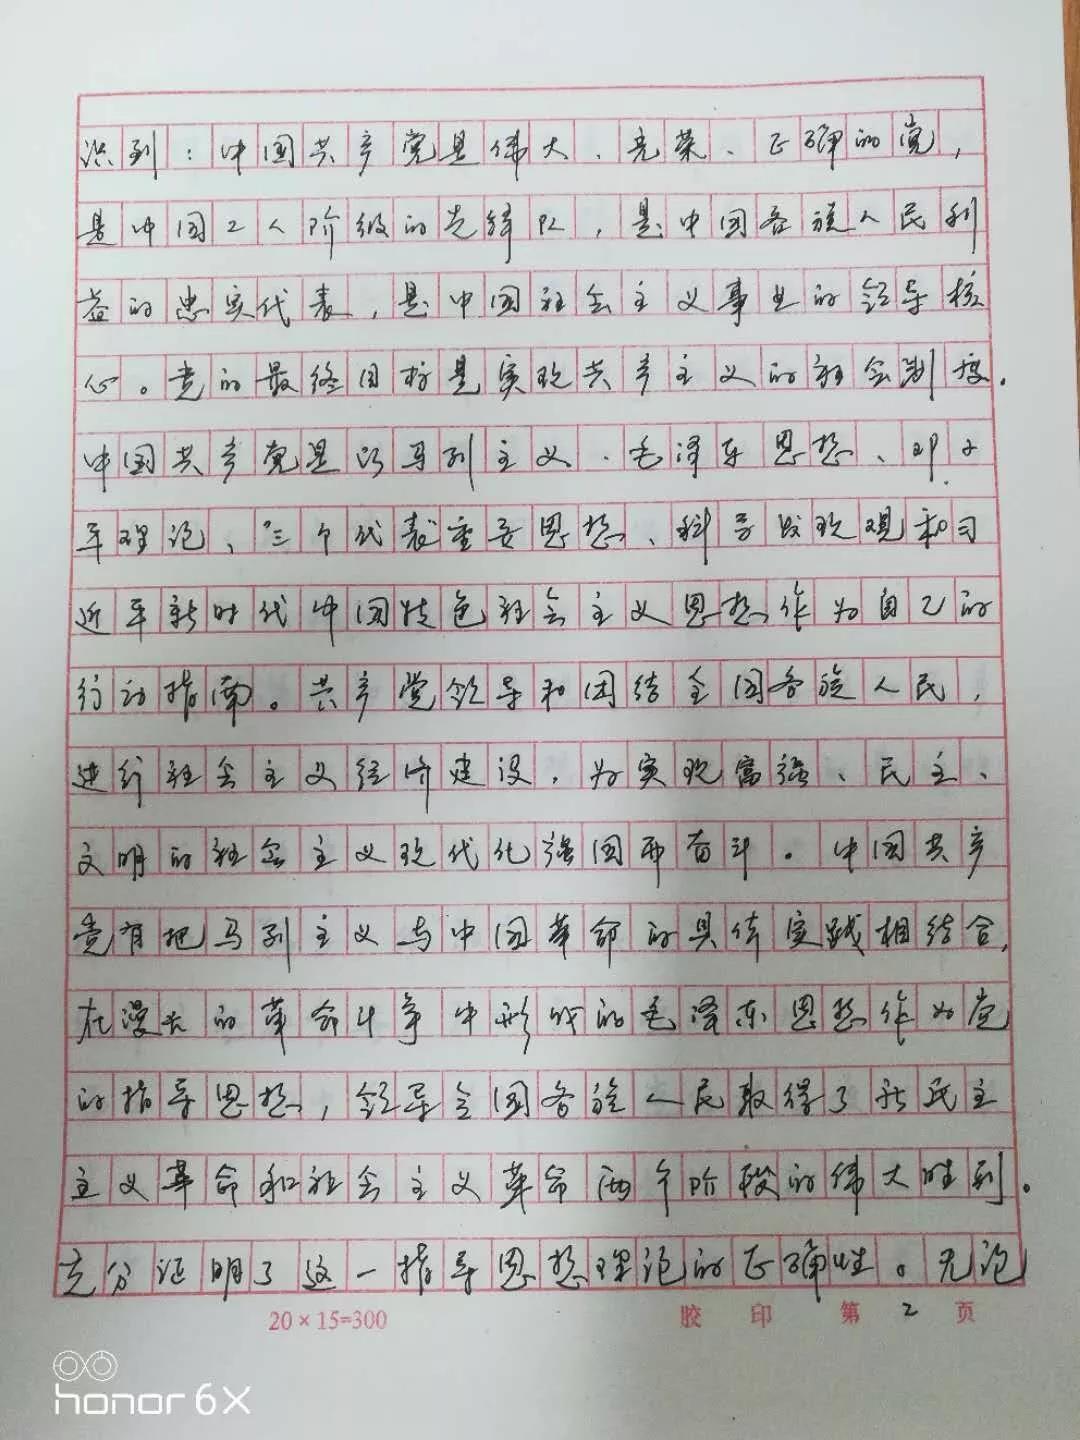 识到：中国共产党是伟大、光荣、正确的党，
是中国工人阶级的先锋队，是中国各族人民利
益的忠实代表，是中国社会主义事业的领导核
心。党的最终目标是实现共产主义的社会制度。
中国共产党是以马列主义、毛泽东思想、邓小
平理论、“三个代表重要思想、科学发展观和习
近平新时代中国特色社会主义思想作为自己的
行动指南。共产党领导和团结全国各族人民，
进行社会主义经济建设，为实现富强、民主、
文明的社会主义现代化强国而奋斗。中国共产
党有把马列主义与中国革命的具体实践相结合，
在漫长的革命斗争中形成的毛泽东思想作为党
的指导思想，领导全国各族人民取得了新民主
主义革命和社会主义革命两个阶段的伟大胜利。
充分证明了这一指导思想理论的正确性。无论
20×15=300 胶印 第2页
honor 6X